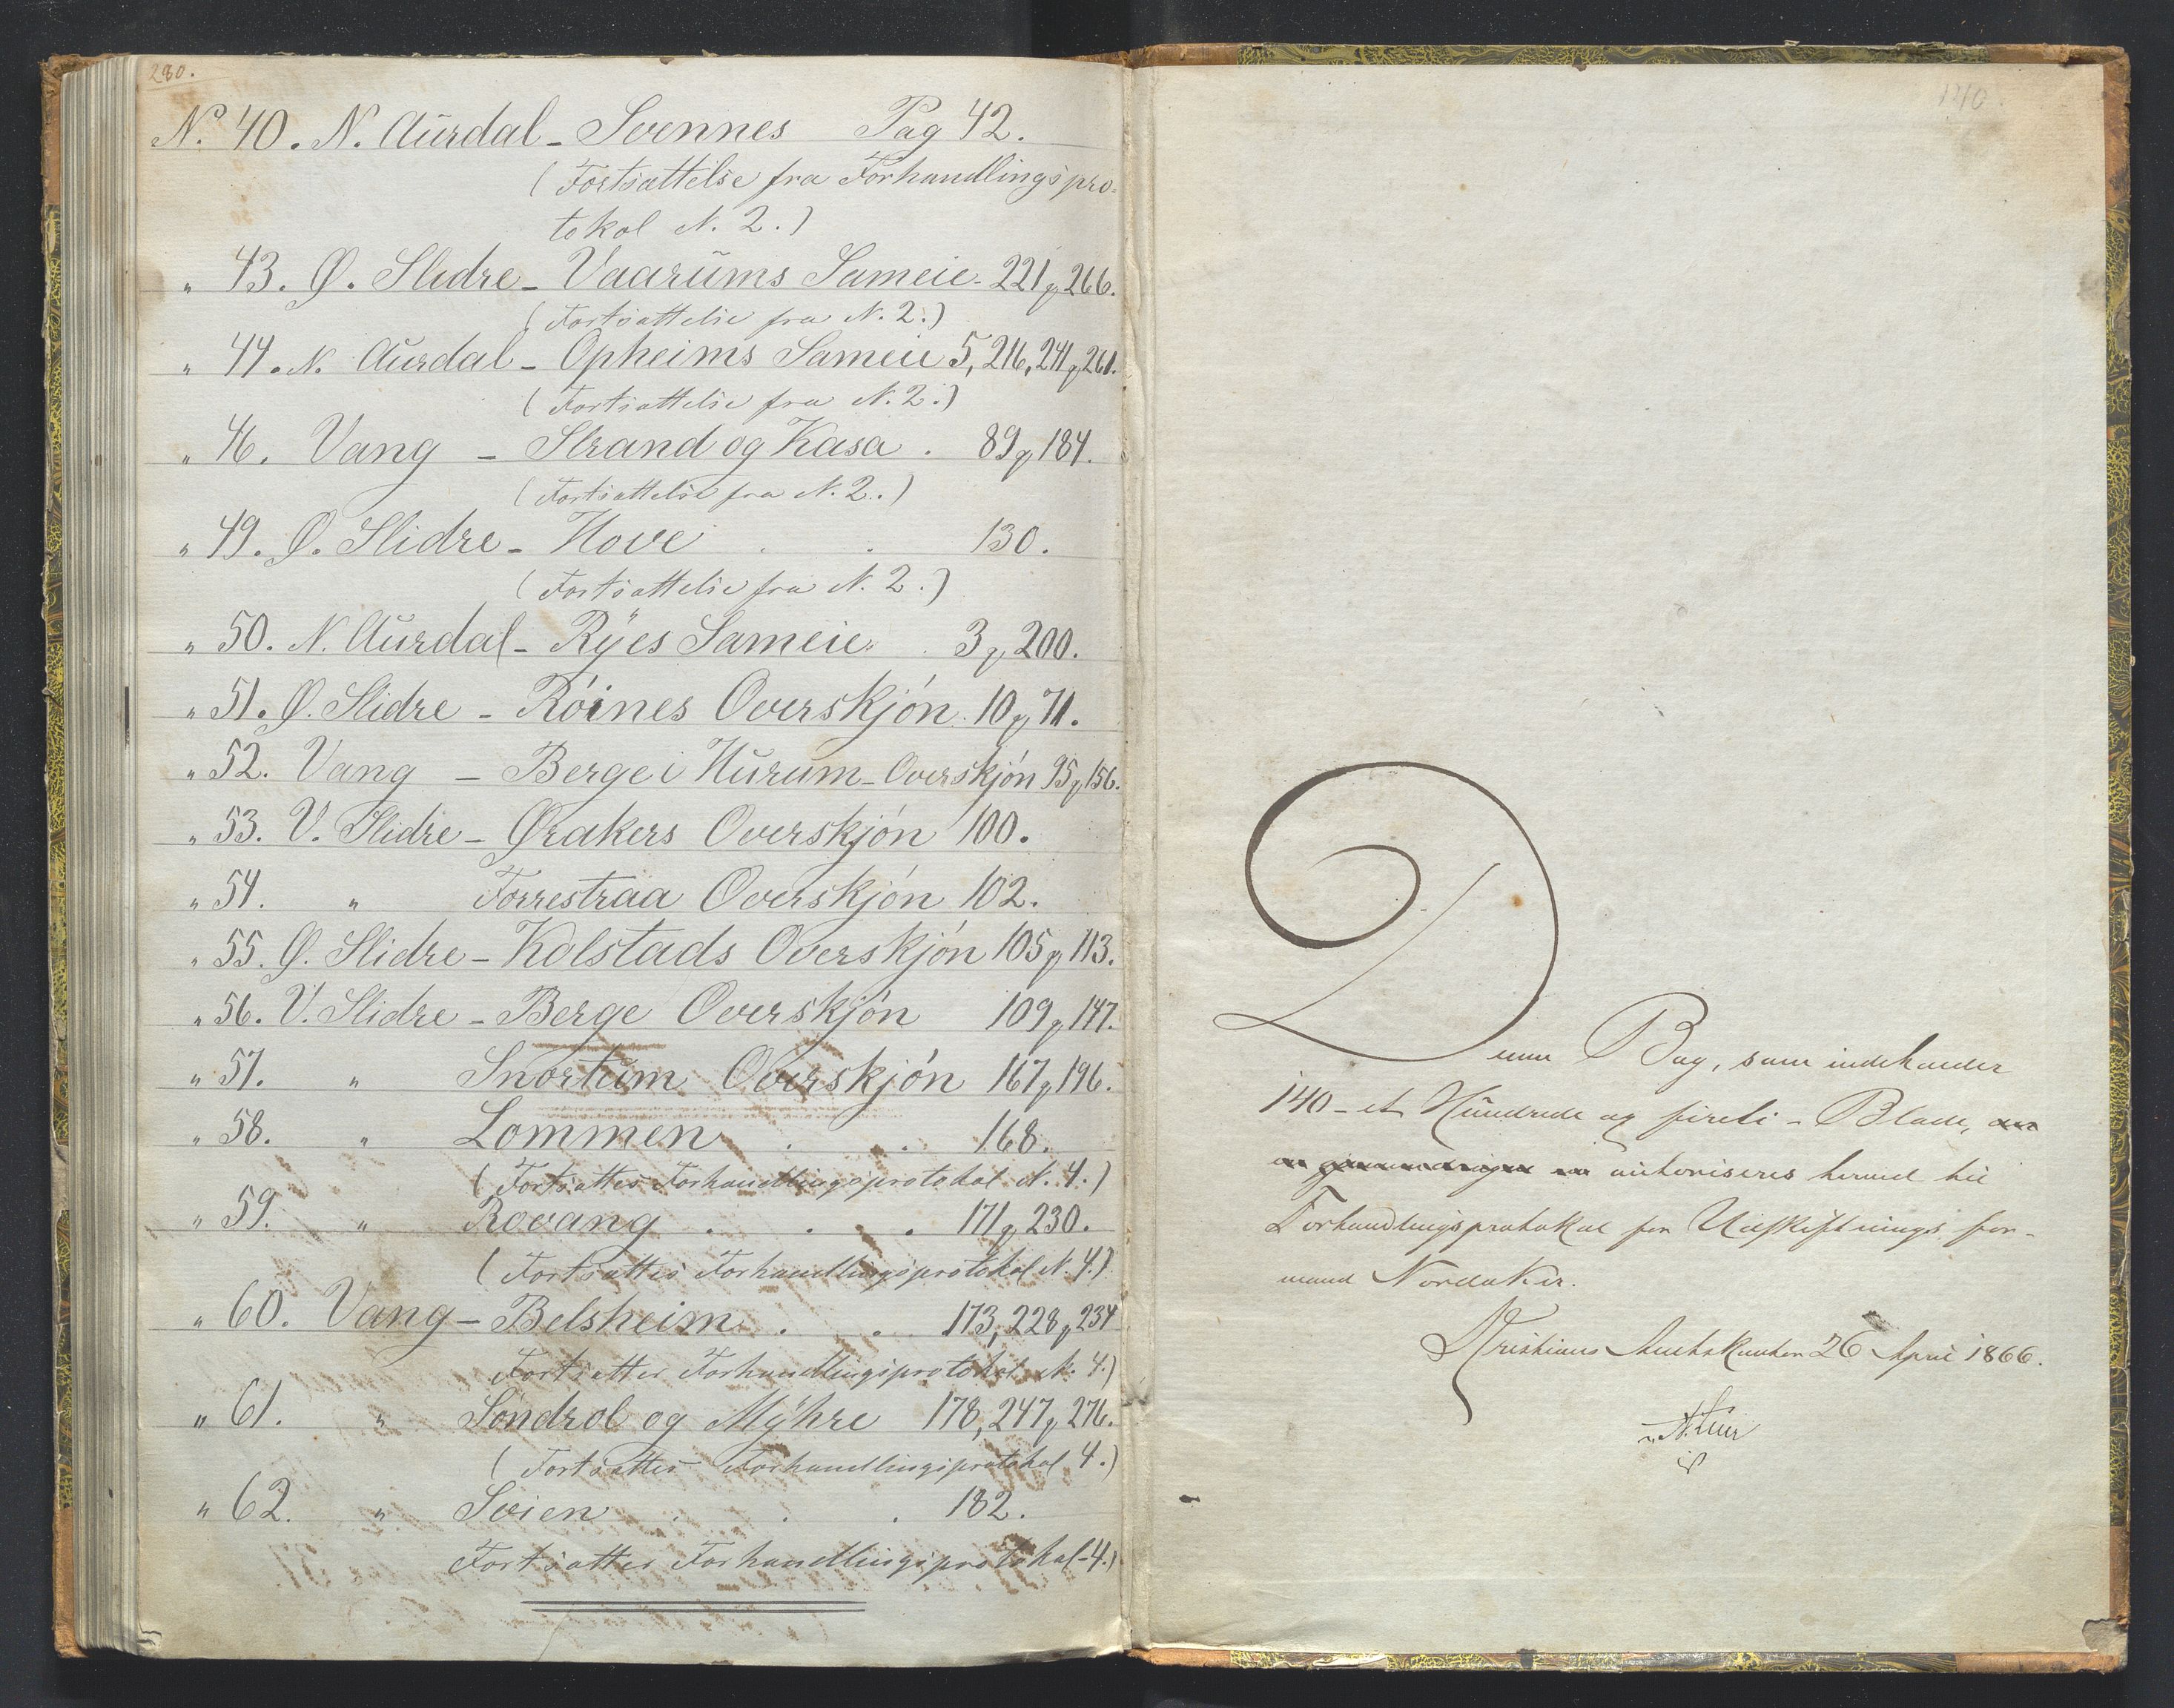 280.
N.º 40. N. Aurdal - Svennes Pag 42.
(Fortsættelse fra Forhandlingspro-
tokol N. 2.)
„ 43. Ø. Slidre - Vaarums Sameie - 221 og 266.
(Fortsættelse fra N. 2.)
„ 44. N. Aurdal - Opheims Sameie 5, 216, 241 og 261.
(Fortsættelse fra N. 2.)
„ 46. Vang - Strand og Kasa . 89 og 184.
(Fortsættelse fra N. 2.)
„ 49. Ø. Slidre - Hove . . 130.
(Fortsættelse fra N. 2.)
„ 50. N. Aurdal - Ryes Sameie . 3 og 200.
„ 51. Ø. Slidre - Röines Overskjön. 10 og 71.
„ 52. Vang - Berge i Hurum - Overskjön 95 og 156.
„ 53. V. Slidre - Ørakers Overskjön 100.
„ 54. „ Forrestraa Overskjön 102.
„ 55. Ø. Slidre - Kolstads Overskjön 105 og 113.
„ 56. V. Slidre - Berge Overskjön 109 og 147.
„ 57. „ Snortum Overskjön 167 og 196.
„ 58. „ Lommen . . 168.
(Fortsættes Forhandlingsprotokol N. 4.)
„ 59. „ Rovang . . . 171 og 230.
(Fortsættes Forhandlingsprotokol N. 4.)
„ 60. Vang - Belsheim . . 173, 228 og 234
Fortsættes Forhandlingsprotokol N. 4.)
„ 61. „ Söndrol og Myhre 178, 247 og 276.
(Fortsættes Forhandlingsprotokol 4.)
„ 62. „ Svien . . . 182.
Fortsættes Forhandlingsprotokol - 4.)
140.
Denne Bog, som indeholder
140 - et Hundrede og fireti - Blade,
autoriseres herved til
Forhandlingsprotokol for Udskiftningsfor-
mand Nordaker.
Kristians Amtskontor 26 April 1866.